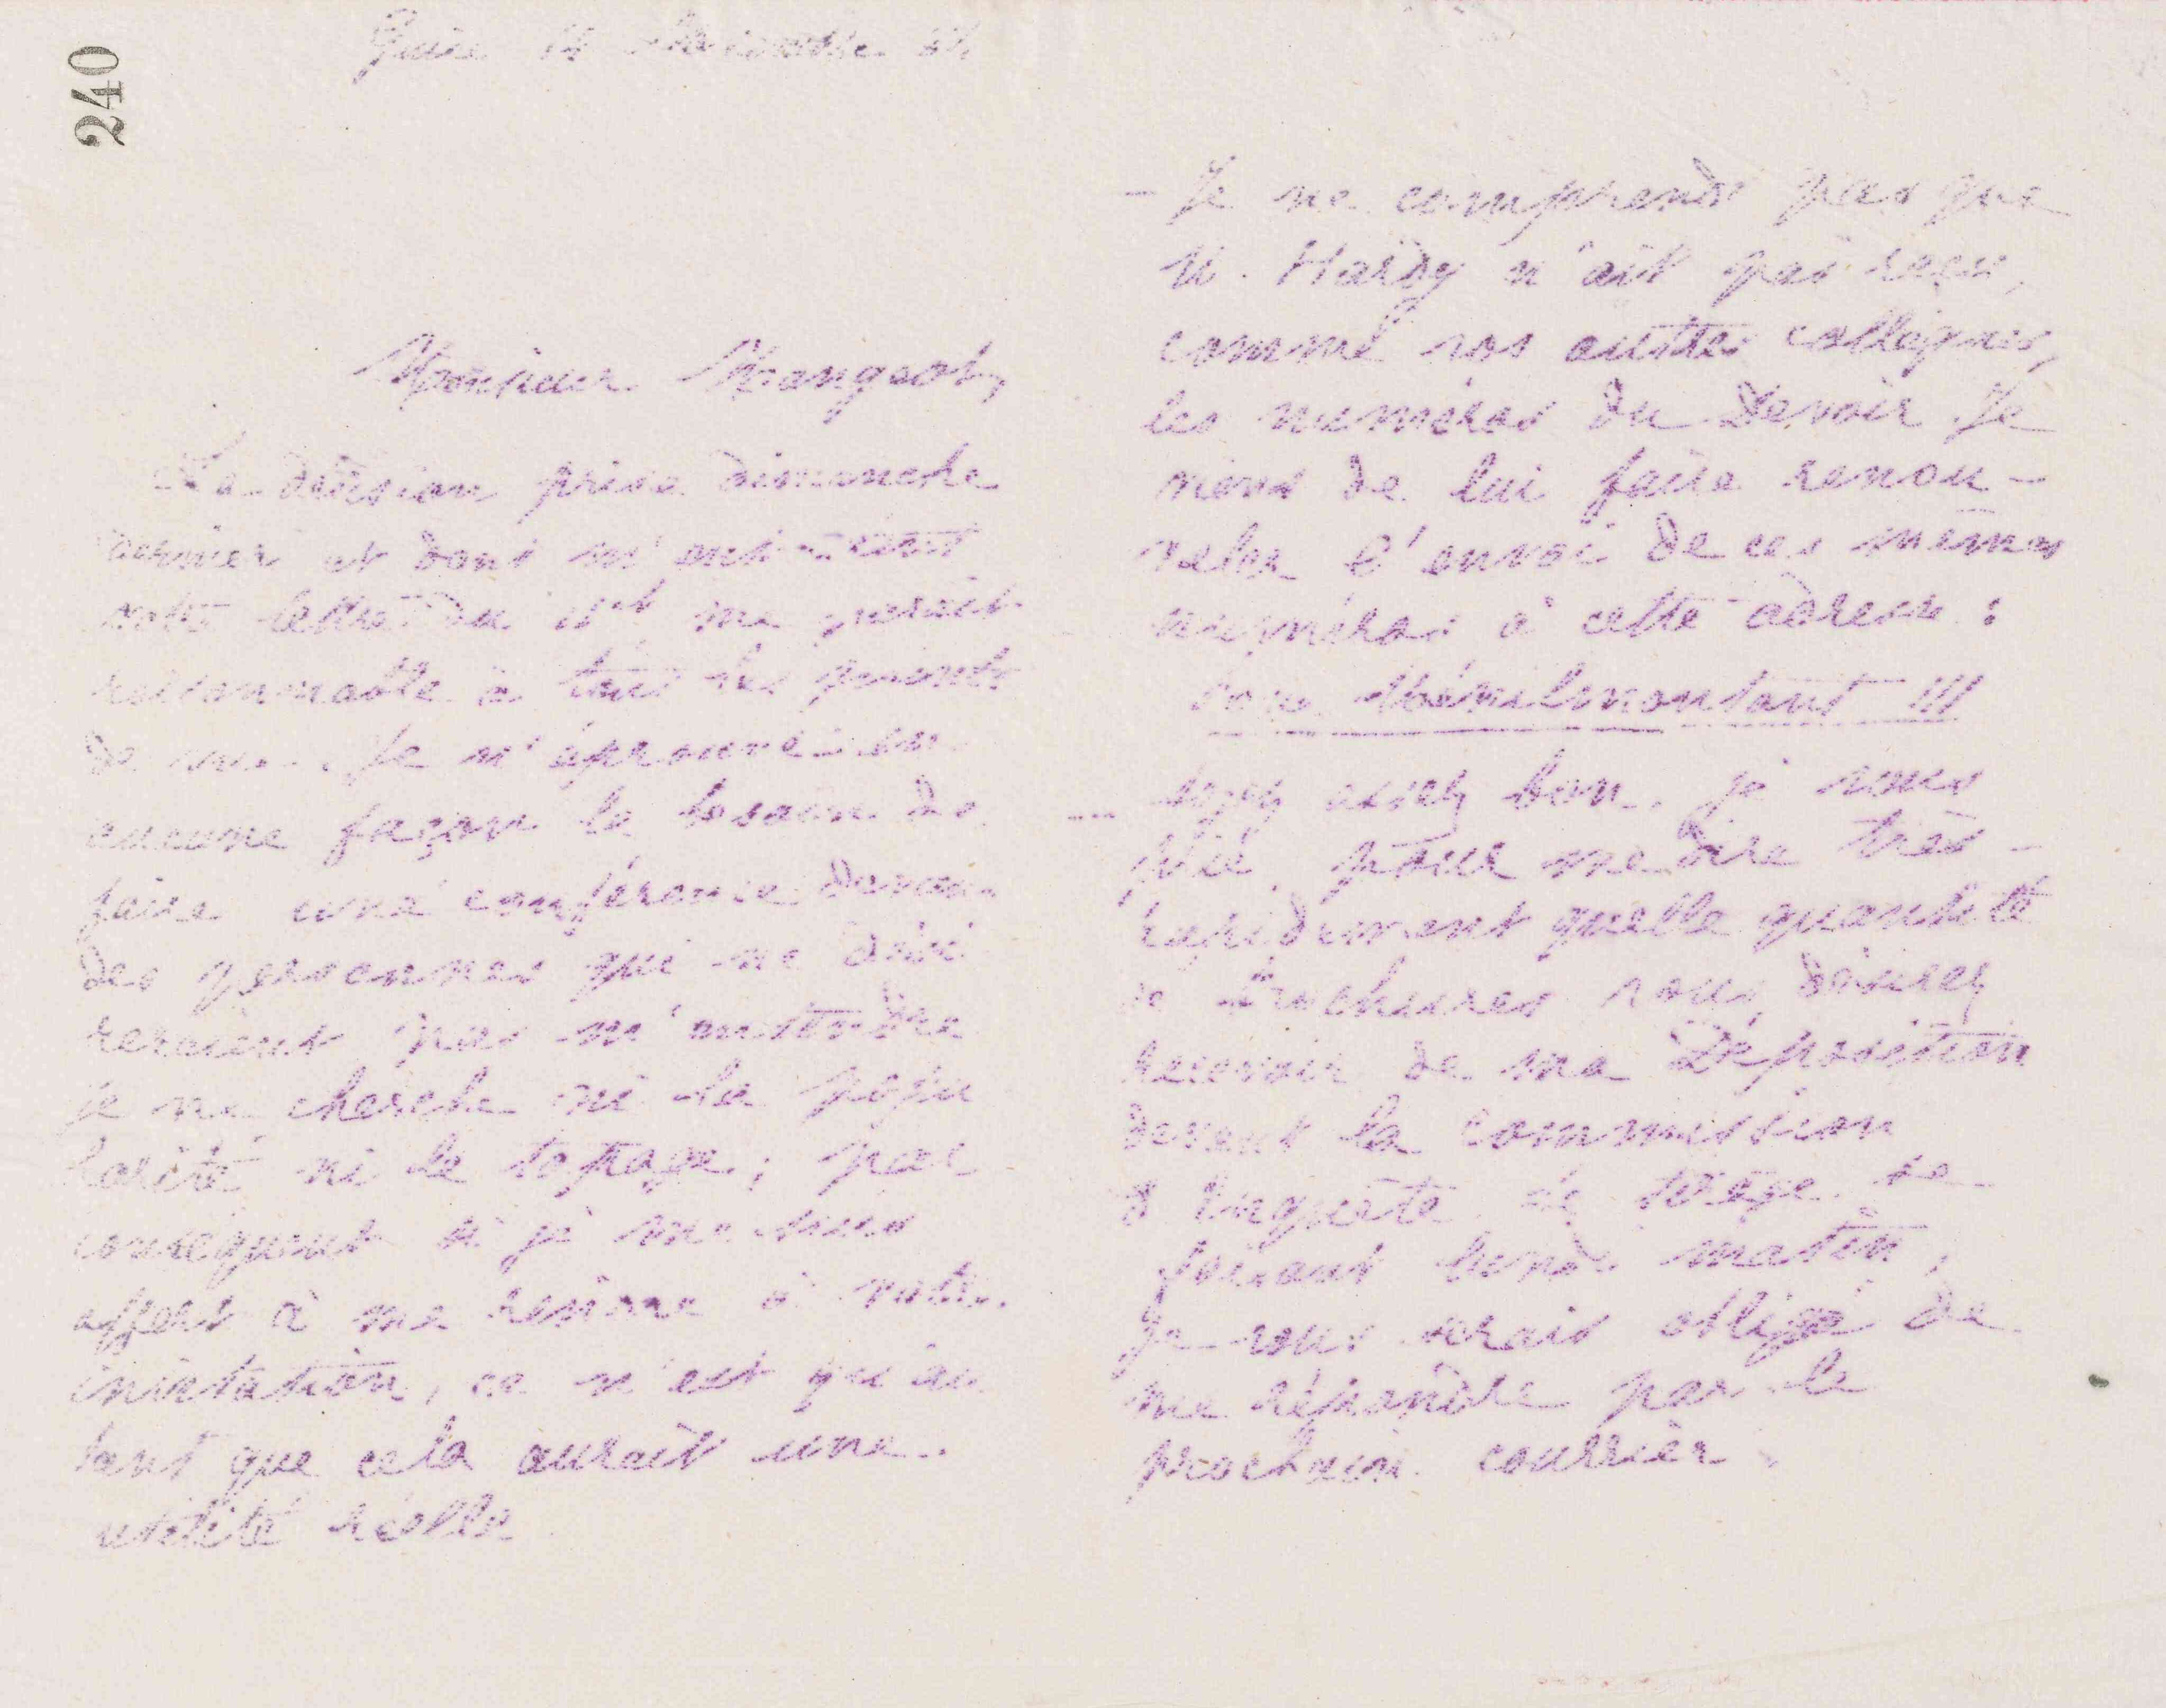 240
Guise
Monsieur Mangeot,
La décision prise dimanche
dernier et dont m'entretient
votre lettre du me parait
raisonnable à tous les points
de vue. Je n'éprouve en
aucune façon le besoin de
faire une conférence devant
des personnes qui ne dési
reraient pas m'entendre
je ne cherche ni la popu
larité ni le tapage; par
conséquent si je me suis
offert à me rendre à votre
invitation, ce n'est qu'au
tant que cela aurait une
utilité réelle
- Je ne comprends pas que
M. Hardy n'ait pas reçu,
comme vos autres collègues,
les numéros du Devoir. Je
viens de lui faire renou-
veler l'envoi de ces mêmes
numéros à cette adresse :
Ménilmontant 111
- Soyez assez bon, je vous
prie, pour me dire très-
rapidement quelle quantité
de Brochures vous désirez
recevoir de ma Déposition
devant la commission
d'enquête, le tirage se
faisant lundi matin,
Je vous serais obligé de
me répondre par le
prochain courrier.